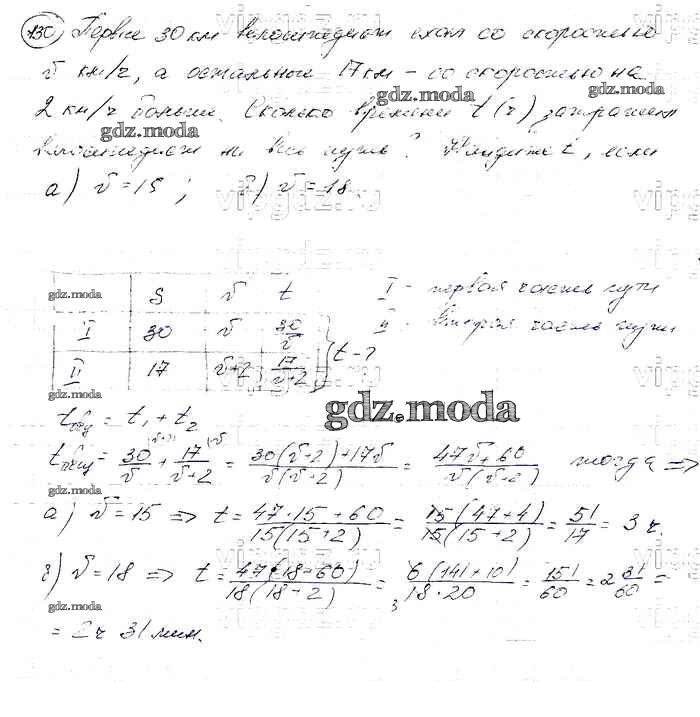 130 Первые 30 км велосипедист ехал со скоростью
v км/ч, а остальные 17 км - со скоростью на
2 км/ч больше. Сколько времени t (ч) затратил
велосипедист на весь путь? Найдите t, если
а) v = 15 ; б) v = 18.
S v t
I 30 v 30/v
II 17 v+2 17/(v+2) t - ?
I - первая часть пути
II - вторая часть пути
t общ = t₁ + t₂
t общ = 30/v + 17/(v+2) = (30(v+2)+17v)/(v(v+2)) = (47v+60)/(v(v+2)) тогда =>
а) v = 15 => t = (47·15+60)/(15(15+2)) = (15(47+4))/(15(15+2)) = 51/17 = 3 ч.
б) v = 18 => t = (47(18-60))/(18(18-2)) = (6(141+10))/(18·20) = 151/60 = 2 31/60 =
= 2ч 31 мин.
gdz.moda
gdz.moda
gdz.moda
gdz.moda
gdz.moda
gdz.moda
gdz.moda
gdz.moda